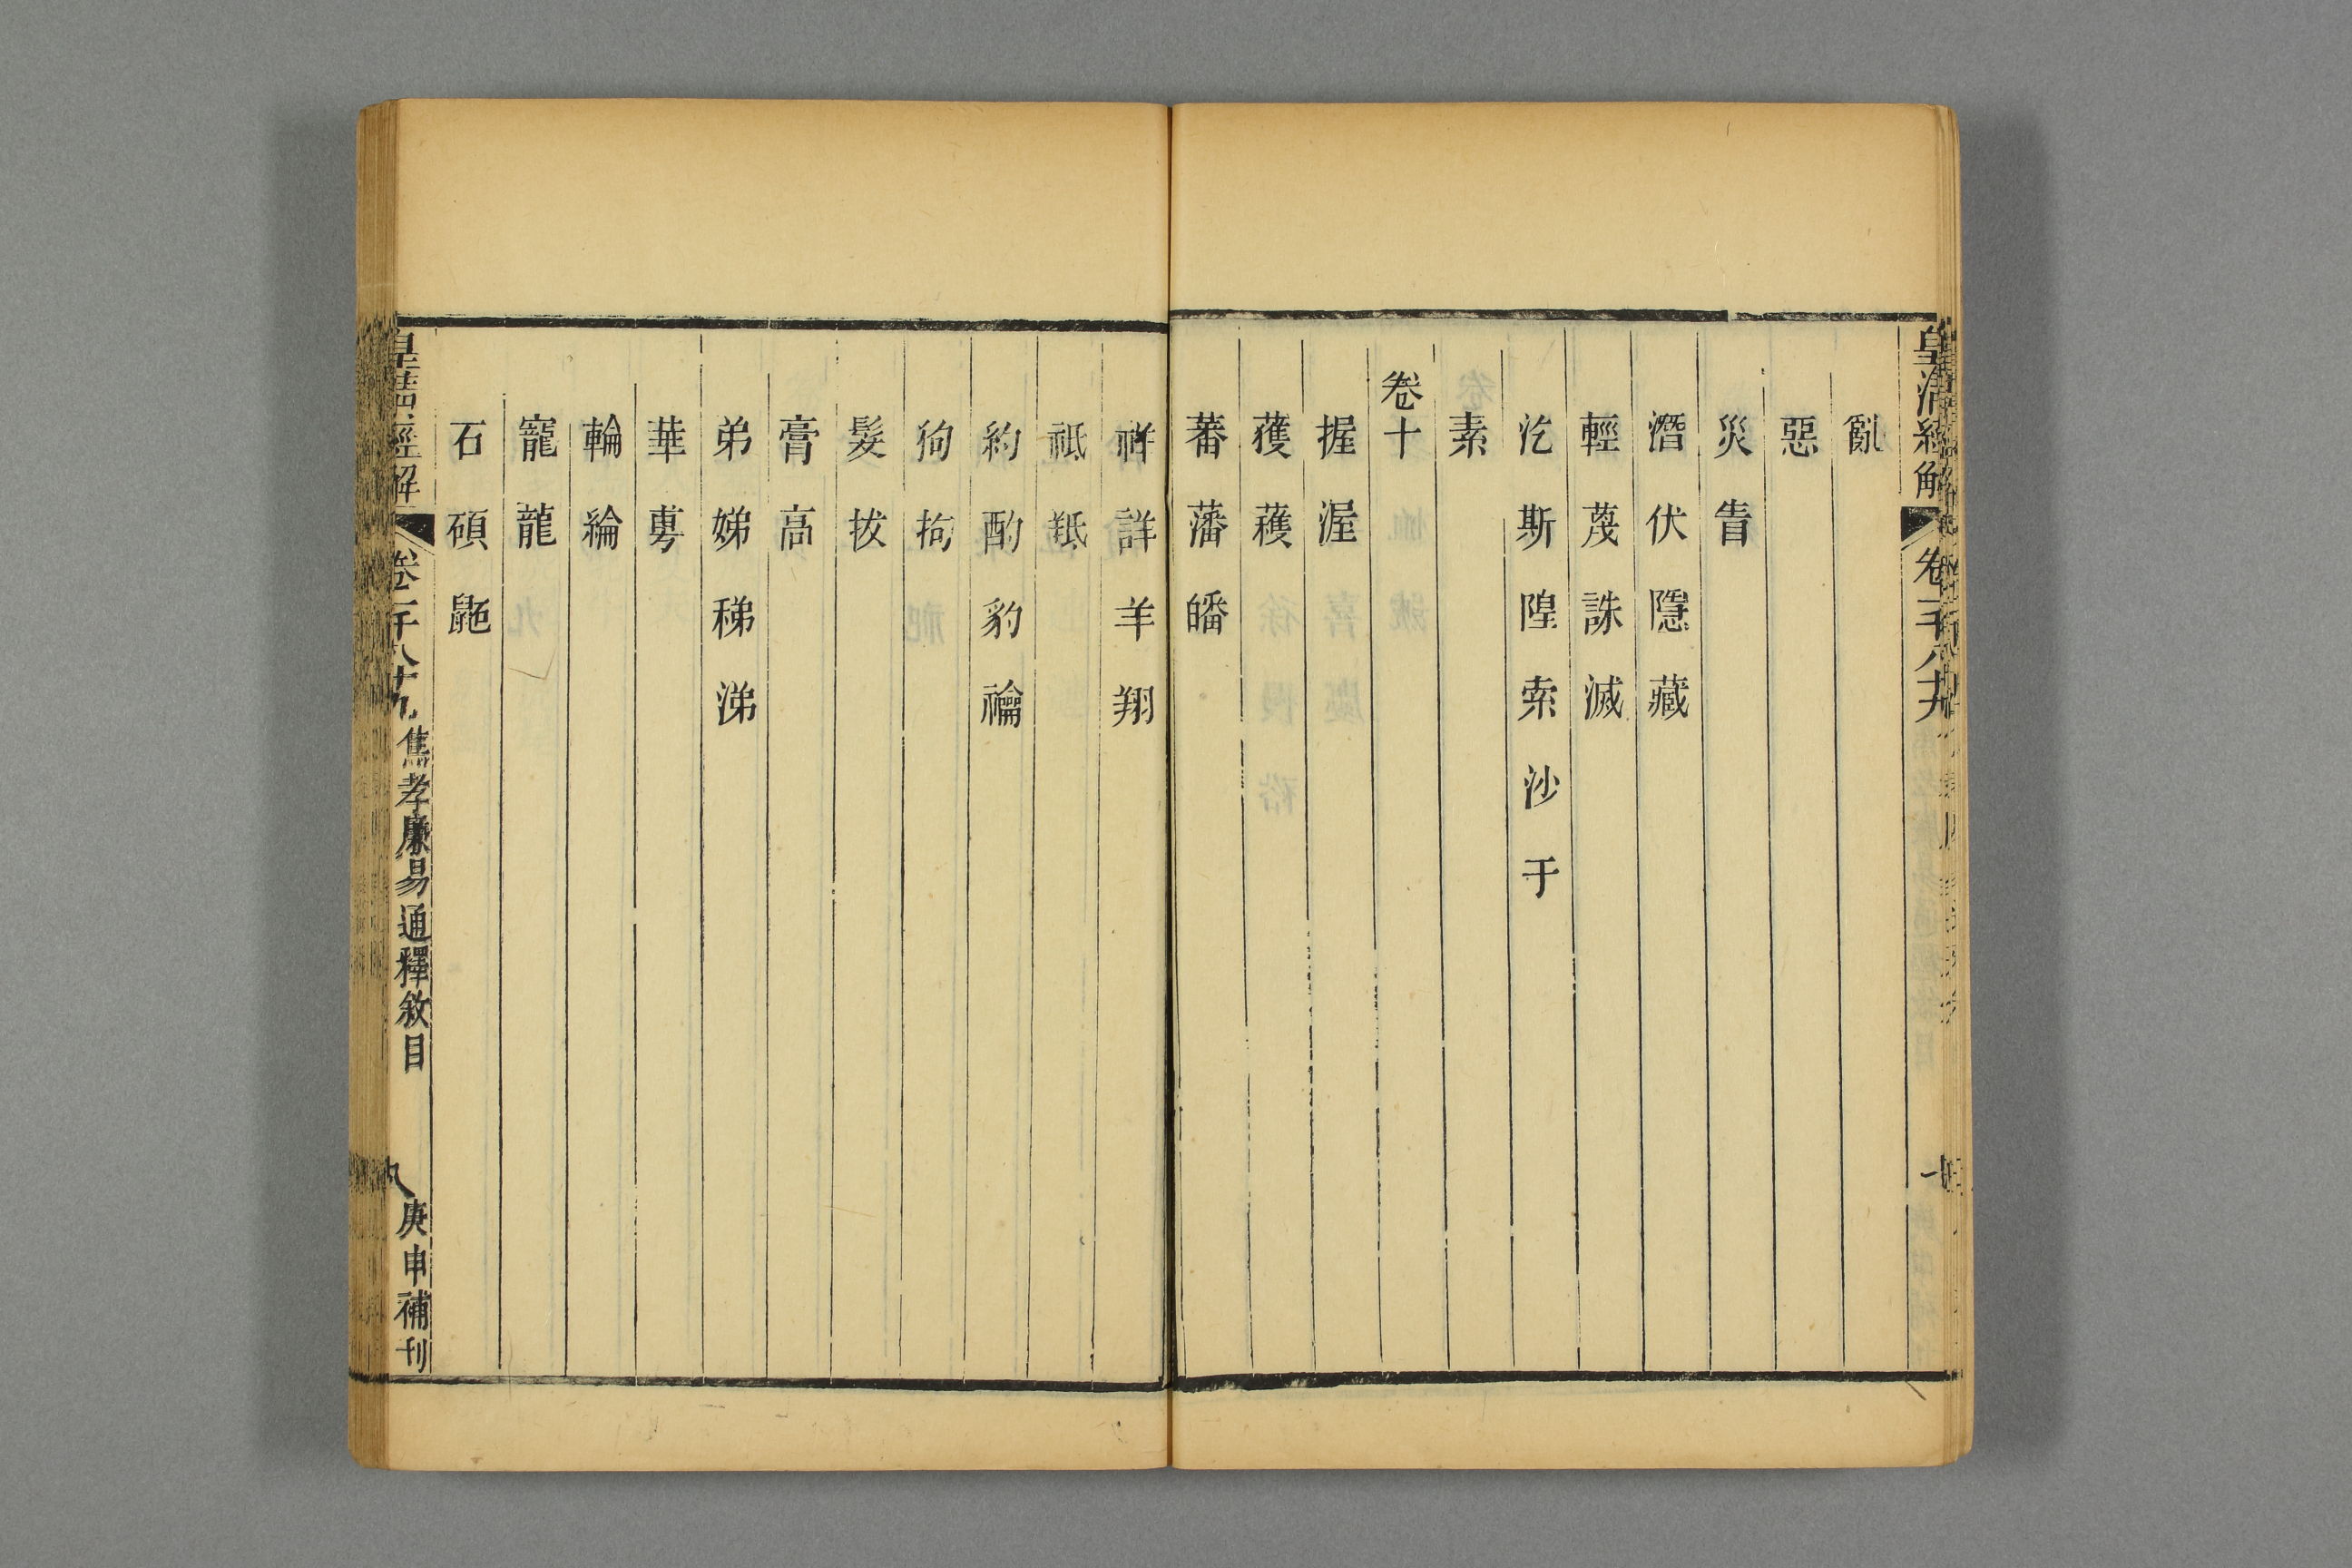 皇清經解 卷一千八十九
亂
惡
災眚
潛伏隱藏
輕蔑誅滅
汔斯隍索沙于
素
卷十
握渥
獲穫
蕃藩皤
祥詳羊翔
祗羝
約酌豹禴
狗拘
髮拔
膏高
弟娣稊涕
華尃
輪綸
寵龍
石碩鼫
皇清經解 卷一千八十九 焦孝廉易通釋敘目 九 庚申補刊